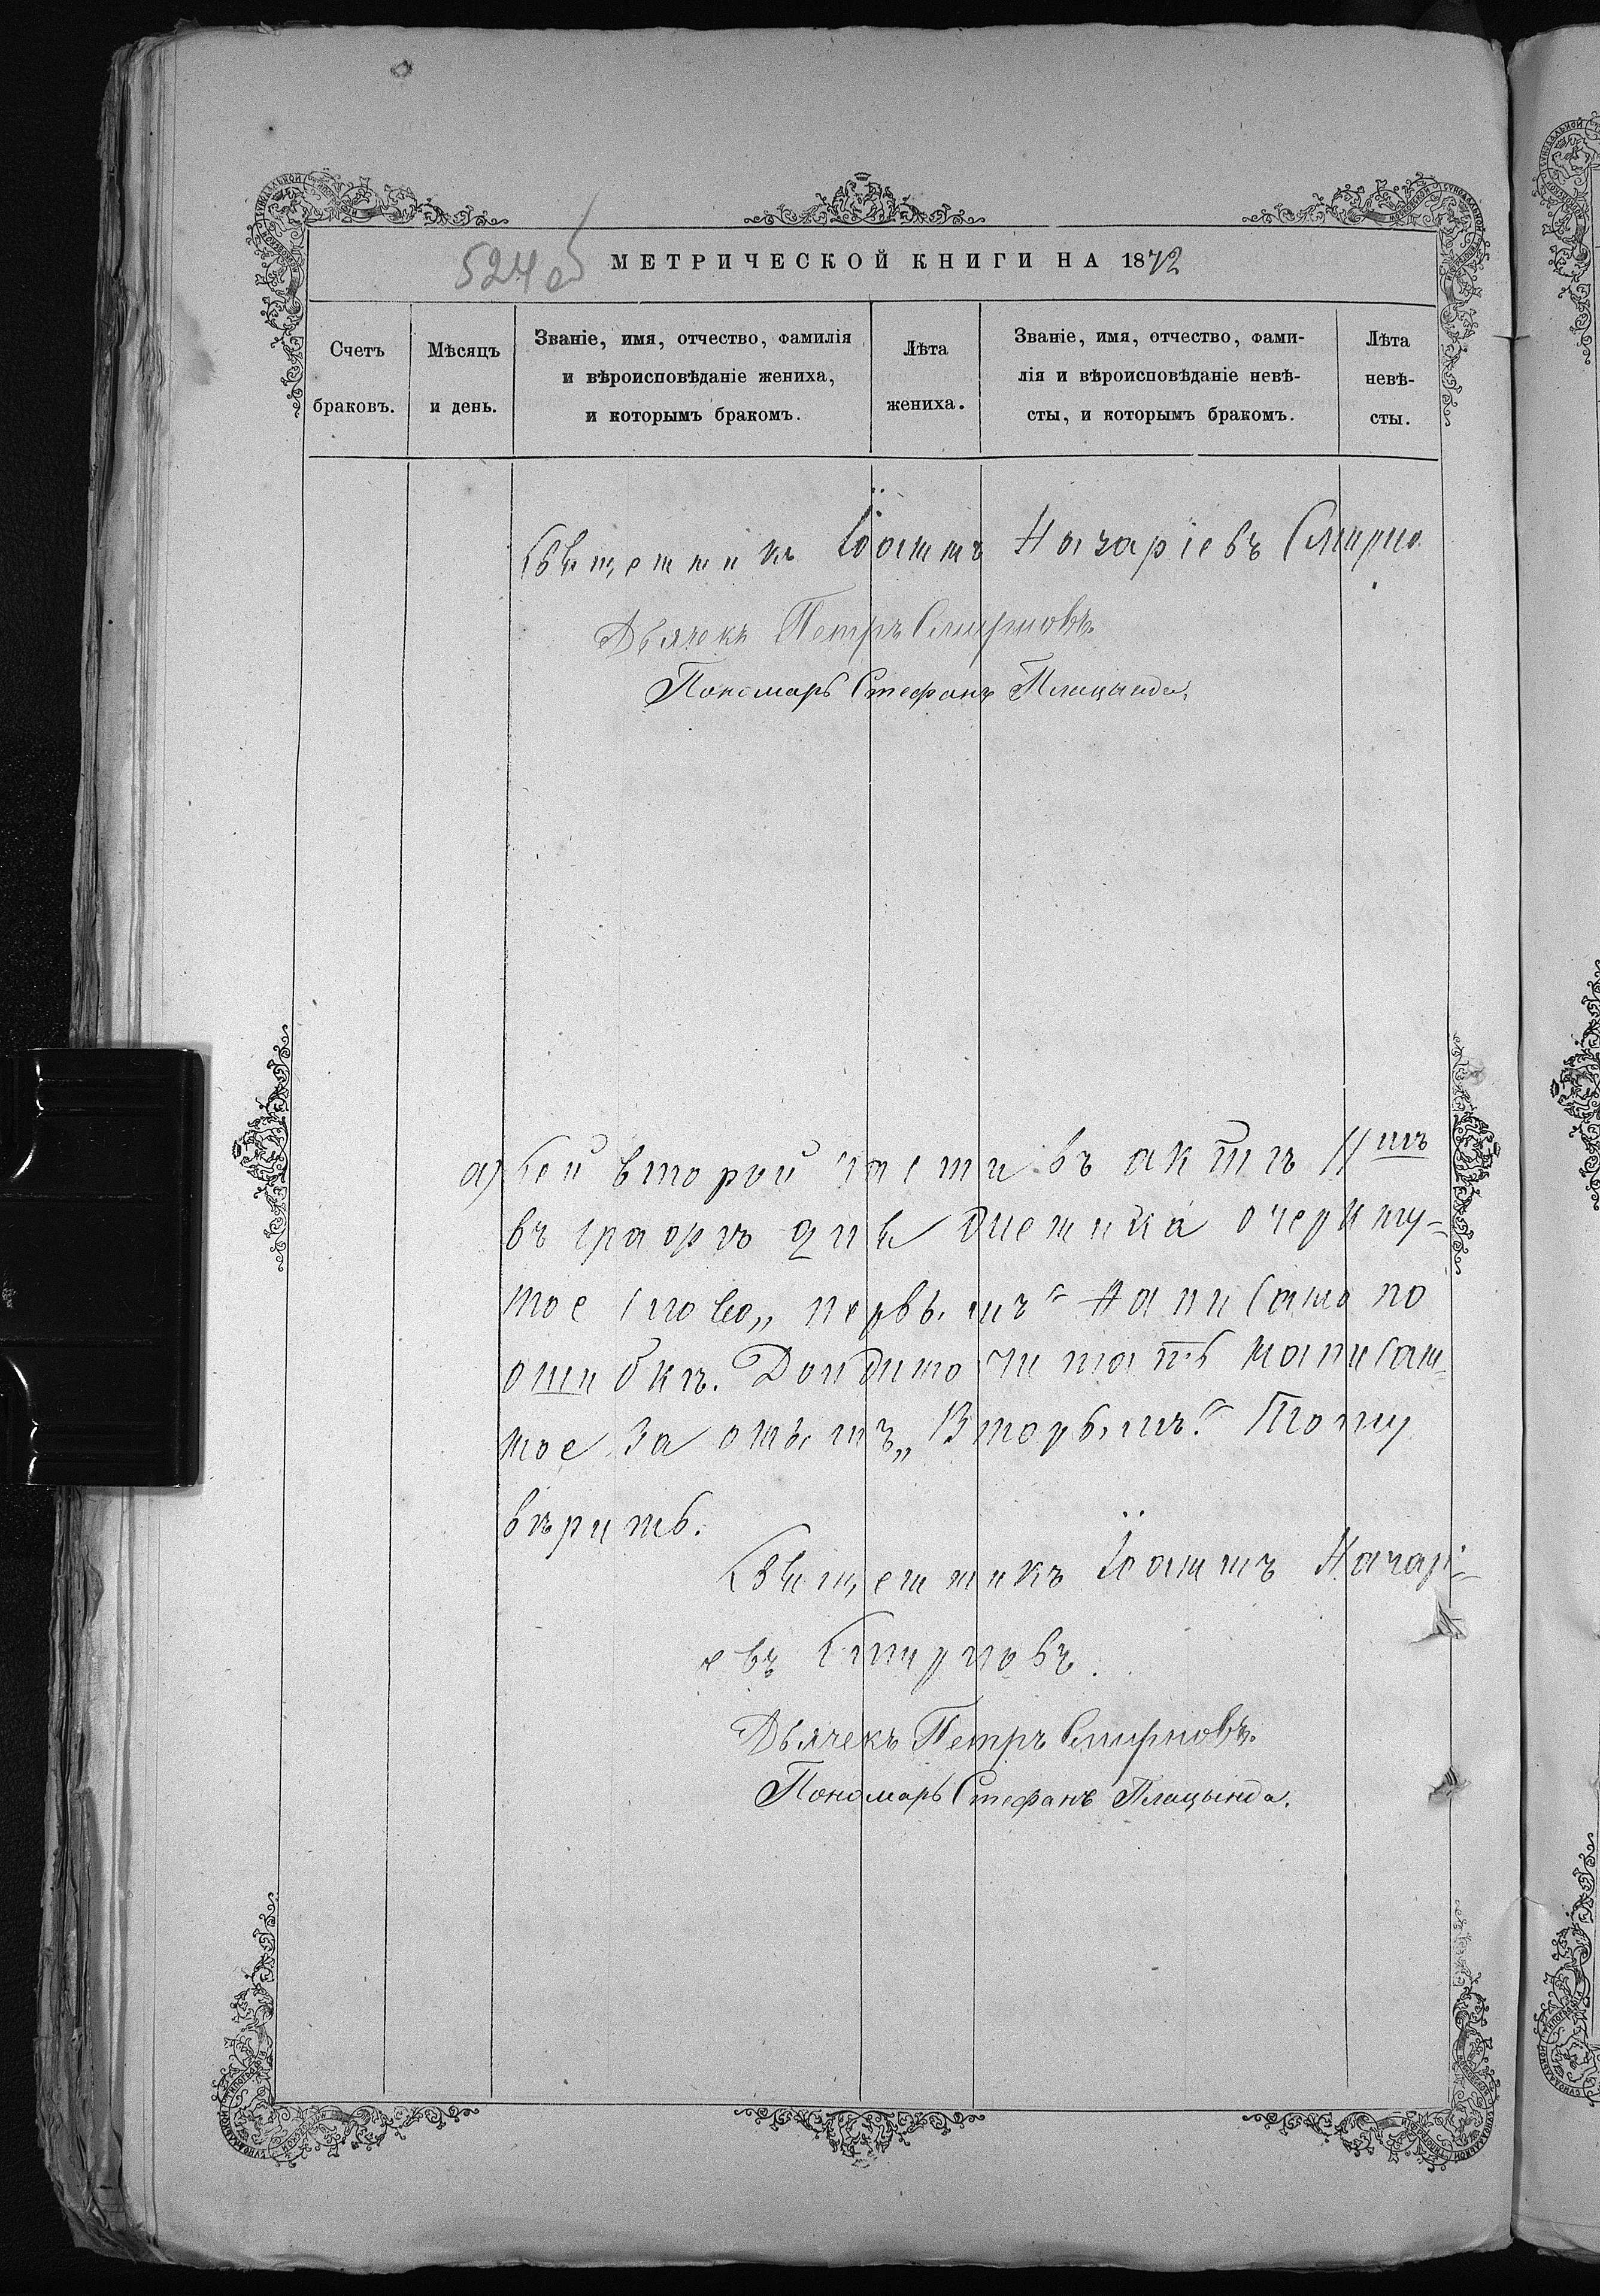 524 об
МЕТРИЧЕСКОЙ КНИГИ НА 1872
Счетъ браковъ.
Мѣсяцъ и день.
Званіе, имя, отчество, фамилія
и вѣроисповѣданіе жениха,
и которымъ бракомъ.
Лѣта
жениха.
Званіе, имя, отчество, фами-
лія и вѣроисповѣданіе невѣ-
сты, и которымъ бракомъ.
Лѣта
невѣ-
сты.
Священникъ Іоаннъ Назаріевъ Смирно
Дьячекъ Петръ Смирновъ.
Пономарь Стефанъ Плацында.
а) Сей второй части въ актѣ
въ графѣ для жениха очеркну-
тое слово „первымъ“ написано по
ошибкѣ. Должно читать написан-
ное за онымъ „Вторымъ“. Тому
вѣрить.
Священникъ Іоаннъ Назарі-
евъ Смирновъ.
Дьячекъ Петръ Смирновъ.
Пономарь Стефанъ Плацында.